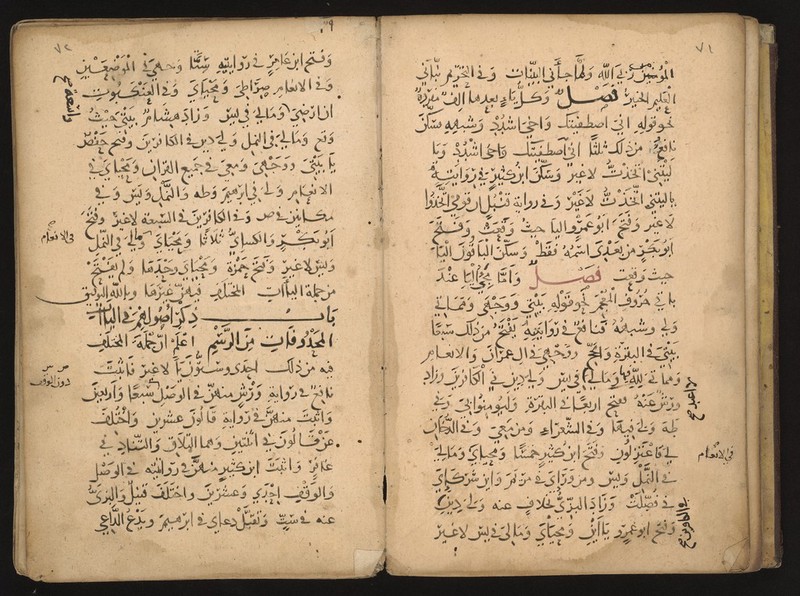 ٧١
ربي الله ولما جاءني البينات وفي التحريم نبأني
العليم الخبير فصل وكل ياء بعدها الف مفردة
نحو قوله اني اصطفيتك واخي اشدد وشبهه سكن
نافع من ذلك ثلثا اني اصطفيتك واخي اشدد ويا
ليتني اتخذت لا غير وسكن ابن كثير في روايتيه
يا ليتني اتخذت لا غير وفي رواية قنبل ان قومي اتخذوا
لا غير وفتح ابو عمرو اليا حيث وقعت وفتح
ابو بكر من بعدي اسمه فقط وسكن الباقون اليا
حيث وقعت فصل واما مجي اليا عند
باقي حروف المعجم نحو قوله بيتي ووجهي ومماتي
ولي وشبهه فنافع في روايتيه يفتح من ذلك سبعا
بيتي في البقرة والحج ووجهي في ال عمران والانعام
ومماتي لله وما لي في يس ولي دين في الكافرين وزاد
ورش عنه ففتح اربعا في البقرة وليومنوا بي وفي
طه ولي فيها وفي الشعراء ومن معي وفي الدخان
لي فاعتزلون وفتح ابن كثير خمسا ومحياي وما لي
في النمل ويس ومن وراي في مريم واين شركاي
في فصلت وزاد البزي بخلاف عنه ولي دين
وفتح ابو عمرو ياءين ومحياي وما لي في يس لا غير
في الانعام
٧٢
وفتح ابن عامر في روايتيه ستا وجهي في الموضعين
وفي الانعام صراطي ومحياي وفي العنكبوت
ان ارضي وما لي في يس وزاد هشام بيتي حيث
وقع وما لي في النمل ولي دين في الكافرين وفتح حفص
يا بيتي ووجهي ومعي في جميع القران ومحياي في
الانعام ولي في ابرهيم وطه والنمل ويس وفي
مكانين في ص وفي الكافرين في السبعه لا غير وفتح
ابو بكر والكسائي ثلاثا ومحياي وما لي في النمل
ويس لا غير وفتح حمزة ومحياي وحدها ولم يفتح
من جملة الياءات المختلف فيهن غيرها وبالله التوفيق
باب ذكر اصولهم في الياات
المحذوفات من الرسم اعلم ان جملة المختلف
فيه من ذلك احدى وستون يا لا غير فاثبت
نافع في رواية ورش منهن في الوصل سبعا واربعين
واثبت منهن في رواية قالون عشرين واختلف
عن قالون في اثنتين وهما التلاق والتناد في
غافر واثبت ابن كثير منهن في روايتيه في الوصل
والوقف احدي وعشرين واختلف قنبل والبزي
عنه في ست وتقبل دعاي في ابرهيم ويدع الداعي
في الانعام
دون الوقف